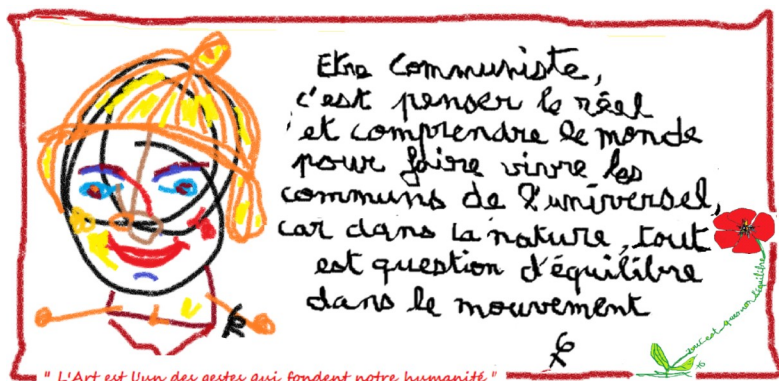 Etre Communiste,
c'est penser le réel
et comprendre le monde
pour faire vivre les
communs de l'universel,
car dans la nature, tout
est question d'équilibre
dans le mouvement
tout est question d'équilibre
" L'Art est l'un des gestes qui fondent notre humanité "